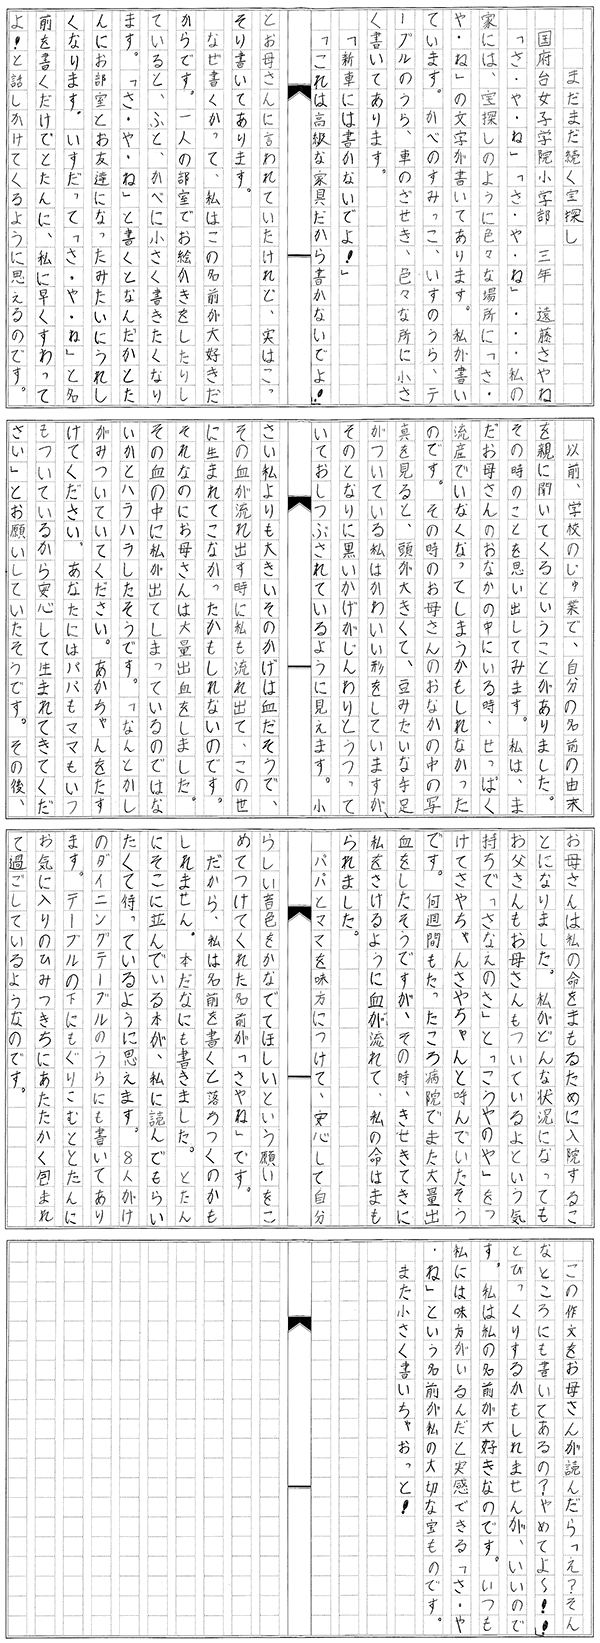 まだまだ続く宝探し
国府台女子学院小学部　三年　遠藤さやね
「さ・や・ね」「さ・や・ね」・・・私の
家には、宝探しのように色々な場所に「さ・
や・ね」の文字が書いてあります。私が書い
ています。かべのすみっこ、いすのうら、テ
ーブルのうら、車のざせき、色々な所に小さ
く書いてあります。
「新車には書かないでよ！」
「これは高級な家具だから書かないでよ！」
とお母さんに言われていたけれど、実はこっ
そり書いてあります。
なぜ書くかって、私はこの名前が大好きだ
からです。一人の部室でお絵かきをしたりし
ていると、ふと、かべに小さく書きたくなり
ます。「さ・や・ね」と書くとなんだかとた
んにお部室とお友達になったみたいにうれし
くなります。いすだって「さ・や・ね」と名
前を書くだけでとたんに、私に早くすわって
よ！と話しかけてくるように思えるのです。
以前、学校のじゅ業で、自分の名前の由来
を親に聞いてくるということがありました。
その時のことを思い出してみます。私は、ま
だお母さんのおなかの中にいる時、せっぱく
流産でいなくなってしまうかもしれなかった
のです。その時のお母さんのおなかの中の写
真を見ると、頭が大きくて、豆みたいな手足
がついている私はかわいい形をしていますが、
そのとなりに黒いかげがじんわりとうつって
いておしつぶされているように見えます。小
さい私よりも大きいそのかげは血だそうで、
その血が流れ出す時に私も流れ出て、この世
に生まれてこなかったかもしれないのです。
それなのにお母さんは大量出血をしました。
その血の中に私が出てしまっているのではな
いかとハラハラしたそうです。「なんとかし
がみついていてください。あかちゃんをたす
けてください。あなたにはパパもママもいつ
もついているから安心して生まれてきてくだ
さい」とお願いしていたそうです。その後、
お母さんは私の命をまもるために入院するこ
とになりました。私がどんな状況になっても
お父さんもお母さんもついているよという気
持ちで「さなえのさ」と「こうやのや」をつ
けてさやちゃんさやちゃんと呼んでいたそう
です。何週間もたったころ病院でまた大量出
血をしたそうですが、その時、きせきてきに
私をさけるように血が流れて、私の命はまも
られました。
パパとママを味方につけて、安心して自分
らしい音色をかなでてほしいという願いをこ
めてつけてくれた名前が「さやね」です。
だから、私は名前を書くと落ちつくのかも
しれません。本だなにも書きました。とたん
にそこに並んでいる本が、私に読んでもらい
たくて待っているように思えます。8人がけ
のダイニングテーブルのうらにも書いてあり
ます。テーブルの下にもぐりこむととたんに
お気に入りのひみつきちにあたたかく包まれ
て過ごしているようなのです。
この作文をお母さんが読んだら「え？そん
なところにも書いてあるの？やめてよ〜！！」
とびっくりするかもしれませんが、いいので
す。私は私の名前が大好きなのです。いつも
私には味方がいるんだと実感できる「さ・や
・ね」という名前が私の大切な宝ものです。
また小さく書いちゃおっと！